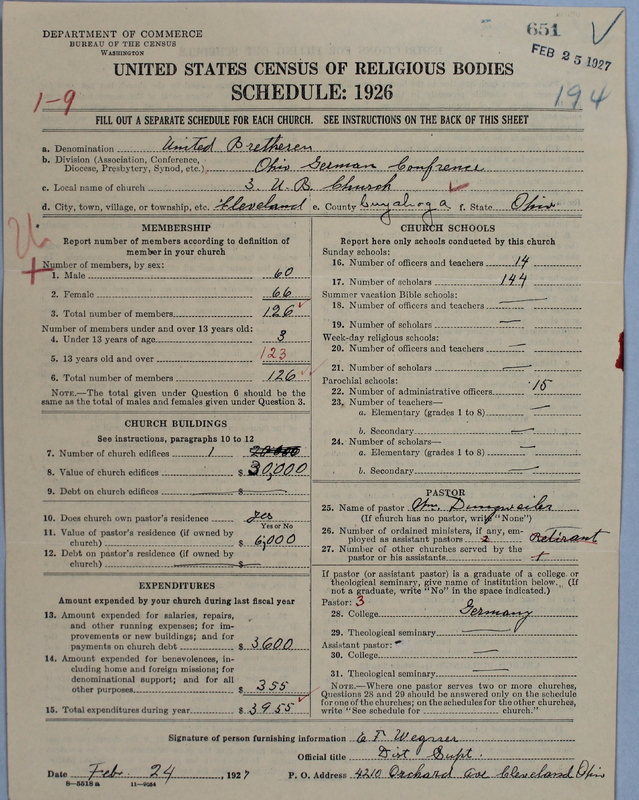 DEPARTMENT OF COMMERCE
BUREAU OF THE CENSUS
WASHINGTON
651
FEB 25 1927
UNITED STATES CENSUS OF RELIGIOUS BODIES
SCHEDULE: 1926
1-9
194
FILL OUT A SEPARATE SCHEDULE FOR EACH CHURCH. SEE INSTRUCTIONS ON THE BACK OF THIS SHEET
a. Denomination United Bretheren
b. Division (Association, Conference, Diocese, Presbytery, Synod, etc.) Ohio German Confrence
c. Local name of church 3. U. B. Church
d. City, town, village, or township, etc. Cleveland e. County Cuyahoga f. State Ohio
MEMBERSHIP
Report number of members according to definition of
member in your church
Number of members, by sex:
1. Male 60
2. Female 66
3. Total number of members 126
Number of members under and over 13 years old:
4. Under 13 years of age 3
5. 13 years old and over 123
6. Total number of members 126
NOTE.—The total given under Question 6 should be
same as the total of males and females given under Question 3.
CHURCH BUILDINGS
See instructions, paragraphs 10 to 12
7. Number of church edifices 1
8. Value of church edifices $ 30,000
9. Debt on church edifices $
10. Does church own pastor's residence yes
Yes or No
11. Value of pastor's residence (if owned by
church) $ 6,000
12. Debt on pastor's residence (if owned by
church) $
EXPENDITURES
Amount expended by your church during last fiscal year
13. Amount expended for salaries, repairs,
and other running expenses; for im-
provements or new buildings; and for
payments on church debt $ 3600
14. Amount expended for benevolences, in-
cluding home and foreign missions; for
denominational support; and for all
other purposes $ 355
15. Total expenditures during year $ 3955
CHURCH SCHOOLS
Report here only schools conducted by this church
Sunday schools:
16. Number of officers and teachers 14
17. Number of scholars 144
Summer vacation Bible schools:
18. Number of officers and teachers
19. Number of scholars
Week-day religious schools:
20. Number of officers and teachers
21. Number of scholars
Parochial schools:
22. Number of administrative officers 15
23. Number of teachers—
a. Elementary (grades 1 to 8)
b. Secondary
24. Number of scholars—
a. Elementary (grades 1 to 8)
b. Secondary
PASTOR
25. Name of pastor Wm.
(If church has no pastor, write "None")
26. Number of ordained ministers, if any, em-
ployed as assistant pastors 2 Retirant
27. Number of other churches served by the
pastor or his assistants 1
If pastor (or assistant pastor) is a graduate of a college or
theological seminary, give name of institution below. (If
not a graduate, write "No" in the space indicated.)
Pastor: 3
28. College Germany
29. Theological seminary
Assistant pastor:
30. College
31. Theological seminary
NOTE.—Where one pastor serves two or more churches,
Questions 28 and 29 should be answered only on the schedule
for one of the churches; on the schedules for the other churches,
write "See schedule for church."
Signature of person furnishing information C F Wegner
Official title Dist Supt.
Date Feb. 24, 1927 P. O. Address 4210 Orchard Ave Cleveland Ohio
8-5518 a 11-9264